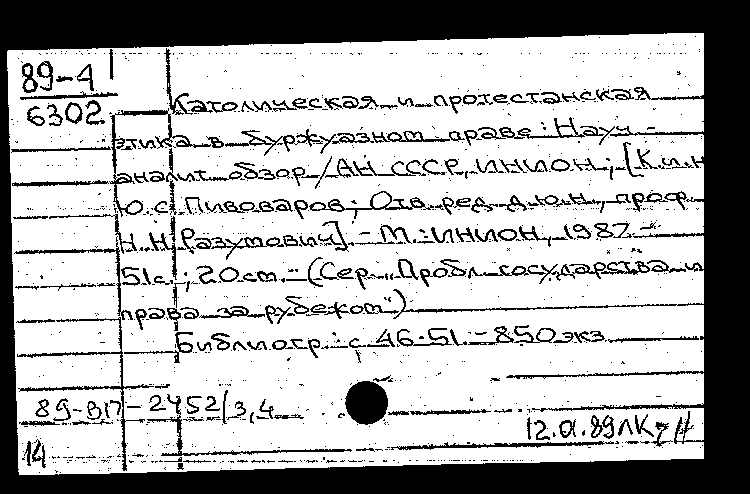 89-4
6302
Католическая и протестанская
этика в буржуазном праве: Науч.-
аналит. обзор / АН СССР, ИНИОН; [К.и.н.
Ю.С. Пивоваров; Отв. ред. д.ю.н., проф.
Н.Н. Разумович]. - М.: ИНИОН, 1987. -
51с.; 20см. - (Сер. "Пробл. государства и
права за рубежом")
Библиогр.: с. 46-51. - 850 экз.
89-ВП-2452/3,4
12.01.89 ЛК
14